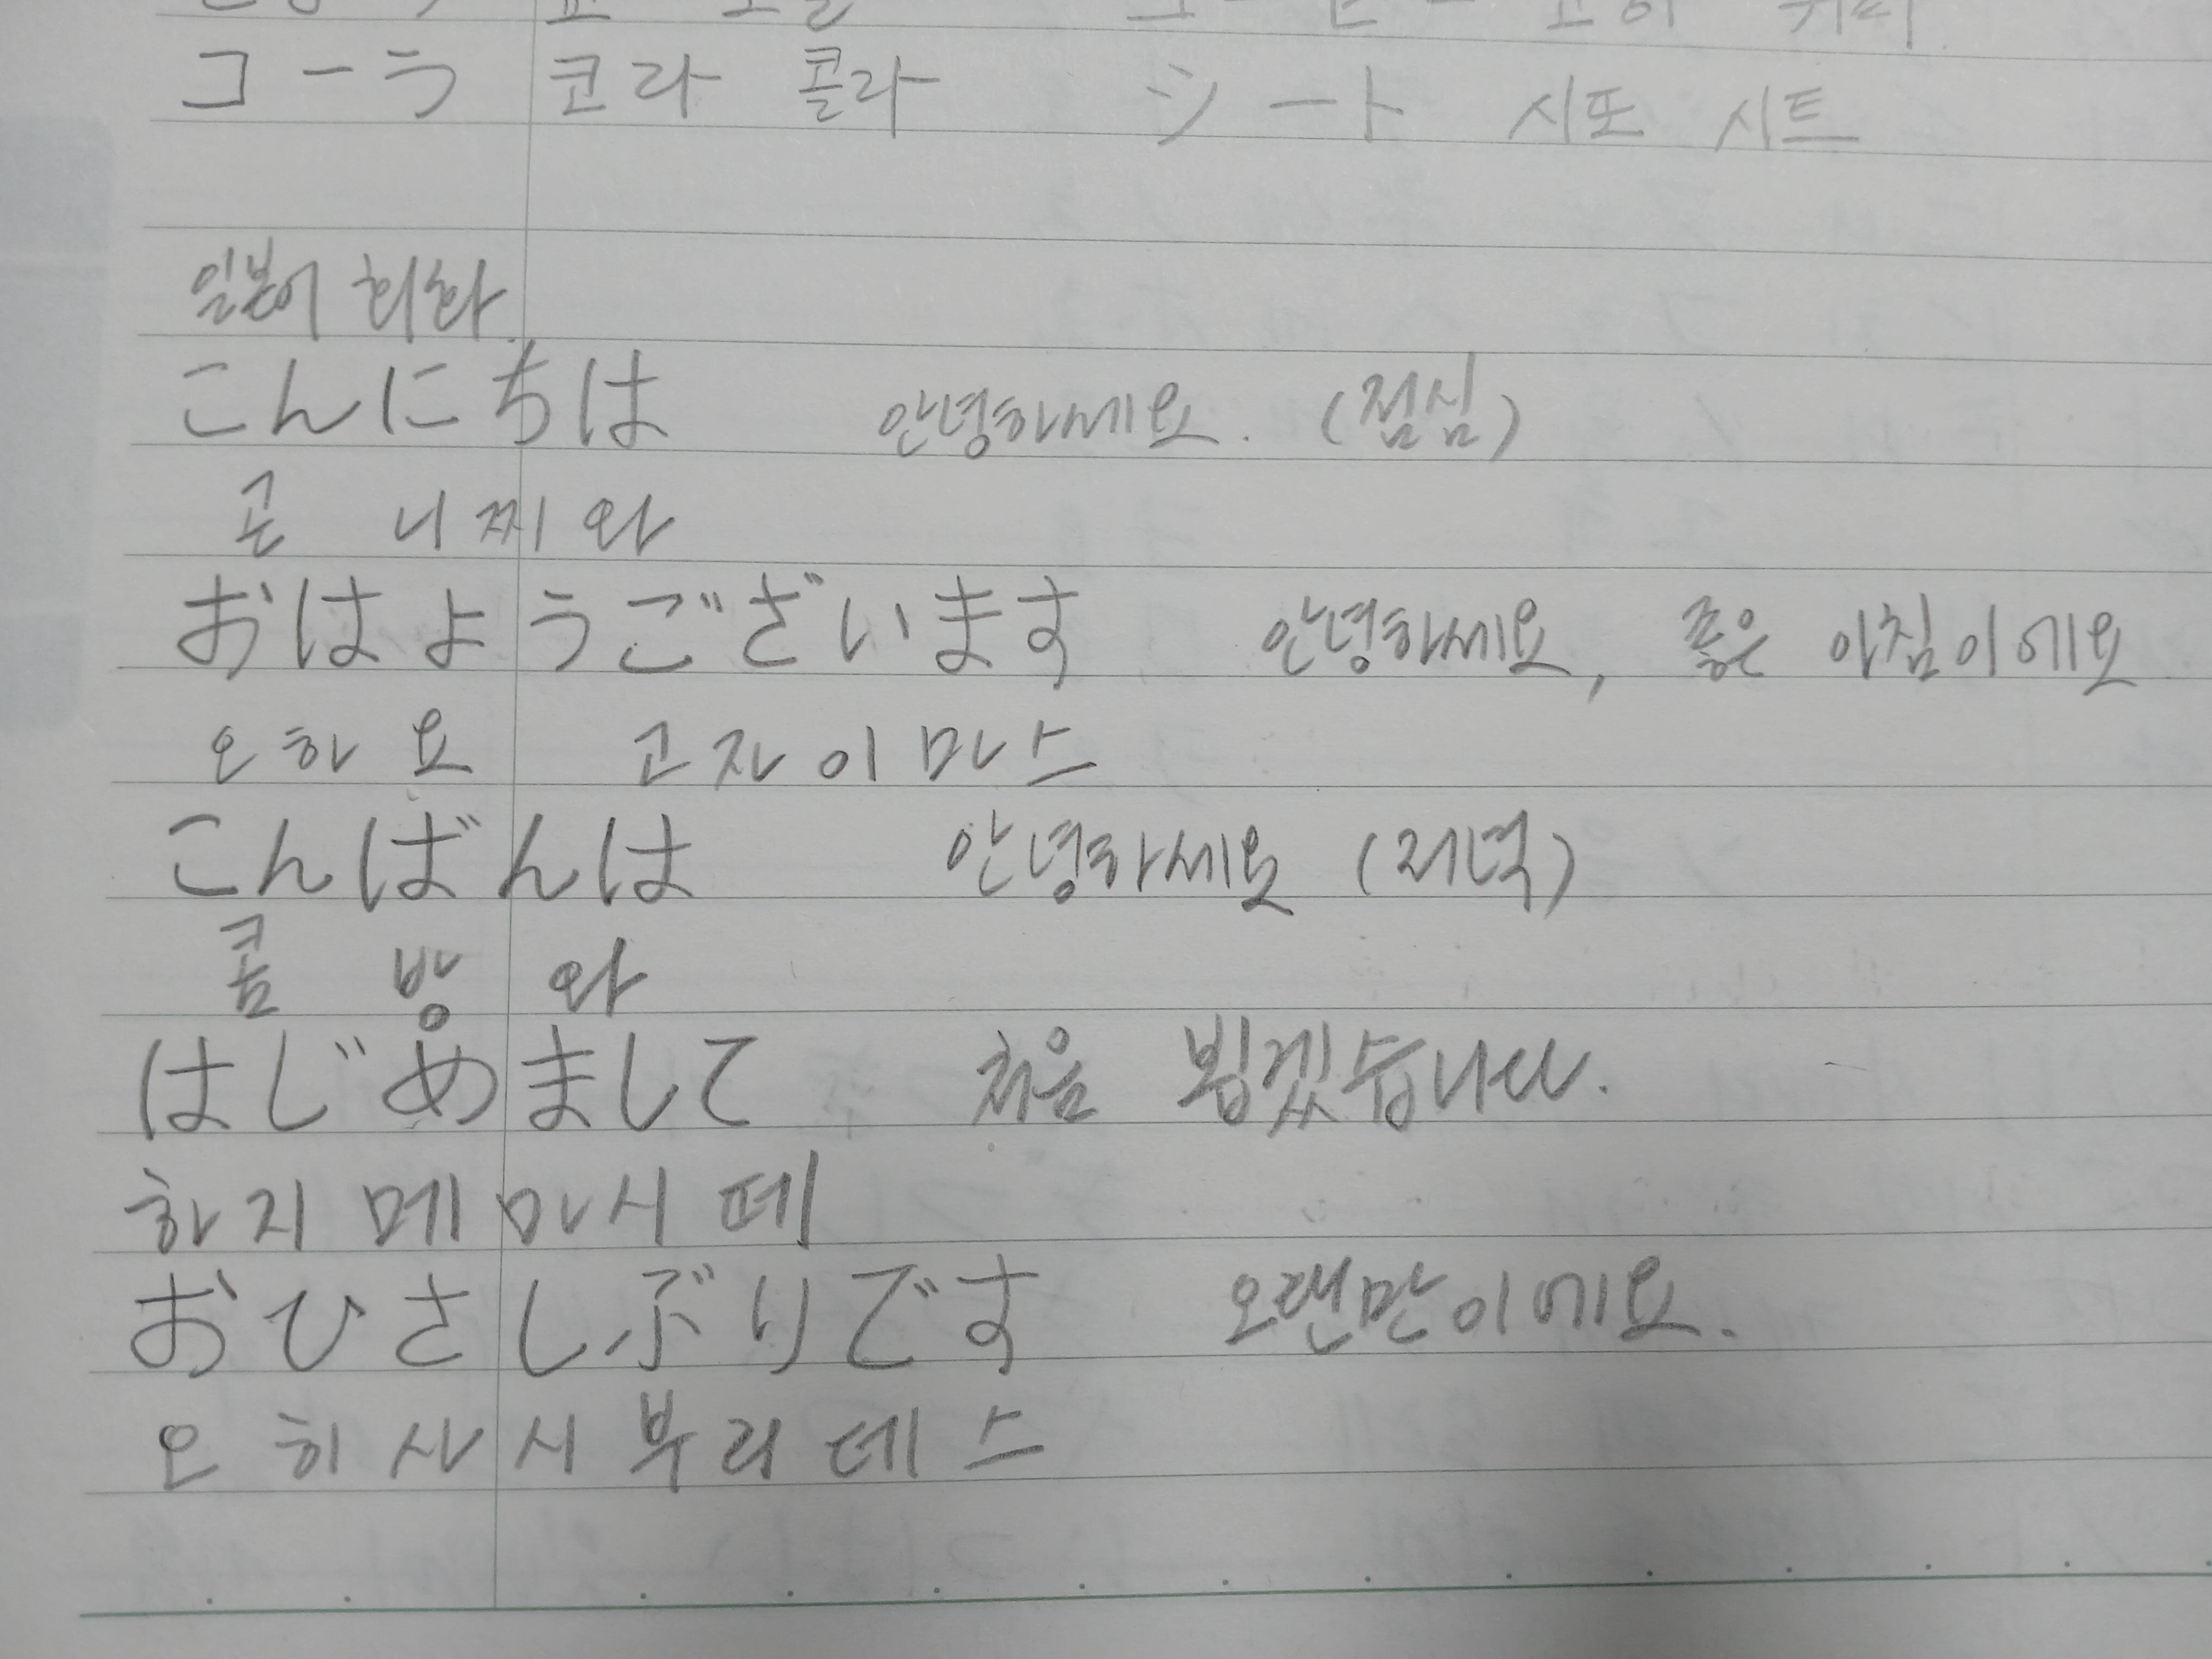 コーラ 코라 콜라 シート 시또 시트
일본어 회화
こんにちは 안녕하세요. (점심)
곤 니찌와
おはようございます 안녕하세요, 좋은 아침이에요
오하요 고자이마스
こんばんは 안녕하세요 (저녁)
콤 방 와
はじめまして 처음 뵙겠습니다.
하지메마시떼
おひさしぶりです 오랜만이에요.
오히사시부리데스